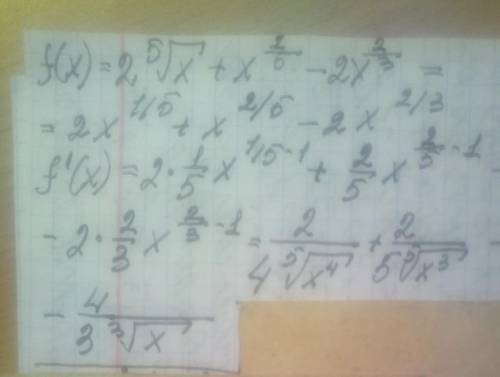 f(x) = 2 ⁵√x + x^(2/5) - 2x^(2/3) =
= 2x^(1/5) + x^(2/5) - 2x^(2/3)
f'(x) = 2·1/5 x^(1/5-1) + 2/5 x^(2/5-1) -
- 2·2/3 x^(2/3-1) = 2/(4 ⁵√x⁴) + 2/(5 ⁵√x³) -
- 4/(3 ³√x)